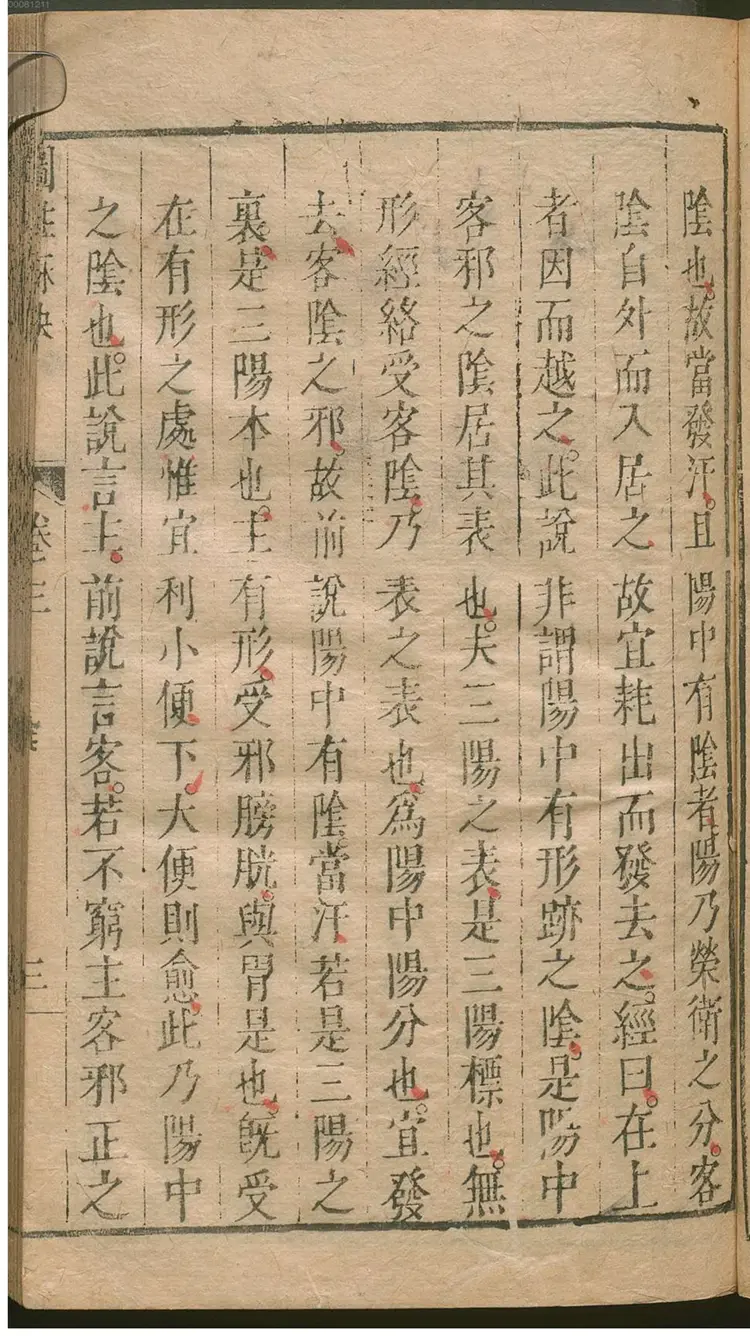 陰也。故當發汗。且陽中有陰者陽乃榮衛之分。客
陰自外而入居之。故宜耗出而發去之。經曰。在上
者因而越之。此說非謂陽中有形跡之陰。是陽中
客邪之陰居其表也。夫三陽之表。是三陽標也。無
形經絡受客陰。乃表之表也。為陽中陽分也。宜發
去客陰之邪。故前說陽中有陰當汗。若是三陽之
裏。是三陽本也。主有形。受邪膀胱。與胃是也。既受
在有形之處惟宜利小便。下大便則愈。此乃陽中
之陰也。此說言主。前說言客。若不窮主客邪正之
卷三
三
00081211